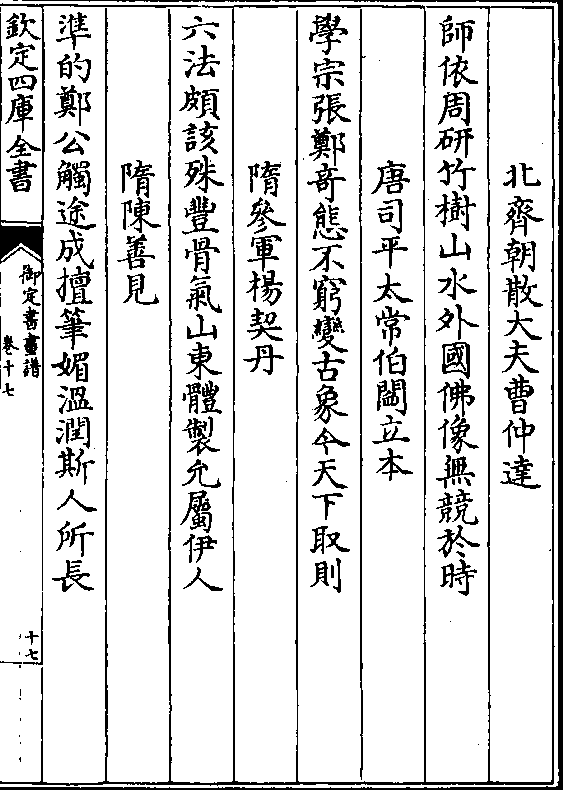 北齊朝散大夫曹仲達
師依周研竹樹山水外國佛像無競於時
唐司平太常伯閻立本
學宗張鄭奇態不窮變古象今天下取則
隋參軍楊契丹
六法頗該殊豐骨氣山東體製允屬伊人
隋陳善見
準的鄭公觸途成擅筆媚溫潤斯人所長
欽定四庫全書
御定書畫譜
卷十七
十七